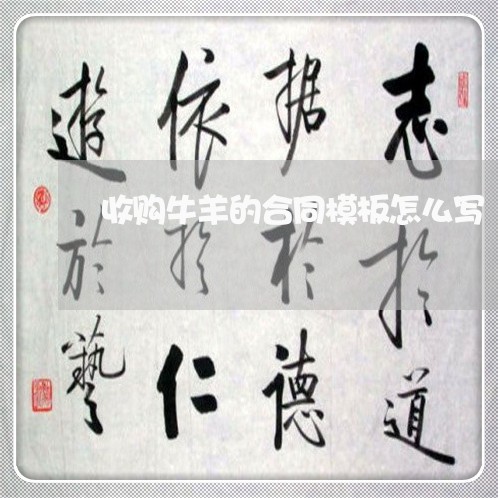 志於道
据於德
依於仁
遊於藝
收购牛羊的合同模板怎么写